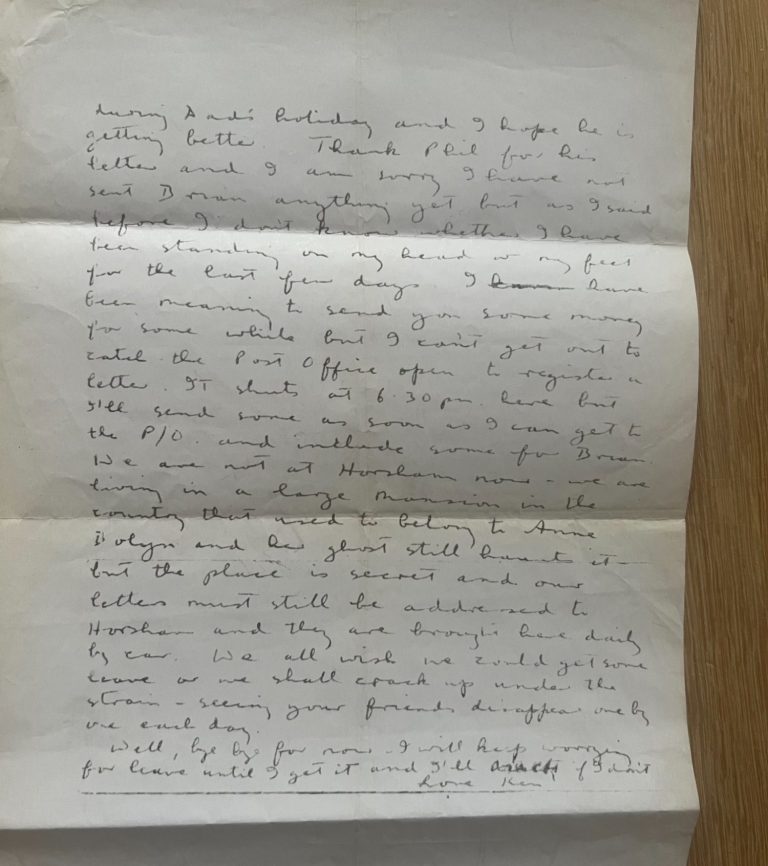 during Dad's holiday and I hope he is
getting better. Thank Phil for his
letter and I am sorry I have not
sent Brian anything yet but as I said
before I don't know whether I have
been standing on my head or my feet
for the last few days. I have
been meaning to send you some money
for some while but I can't get out to
catch the Post Office open to register a
letter. IT shuts at 6.30 pm. here but
I'll send some as soon as I can get to
the P/O. and include some for Brian.
We are not at Horsham now - we are
living in a large mansion in the
country that used to belong to Anne
Bolyn and her ghost still haunts it -
but the place is secret and our
letters must still be addressed to
Horsham and they are brought here daily
by car. We all wish we could get some
leave or we shall crack up under the
strain - seeing your friends disappear one by
one each day.
Well, bye bye for now. I will keep worrying
for leave until I get it and I'll if I don't
Love Ken